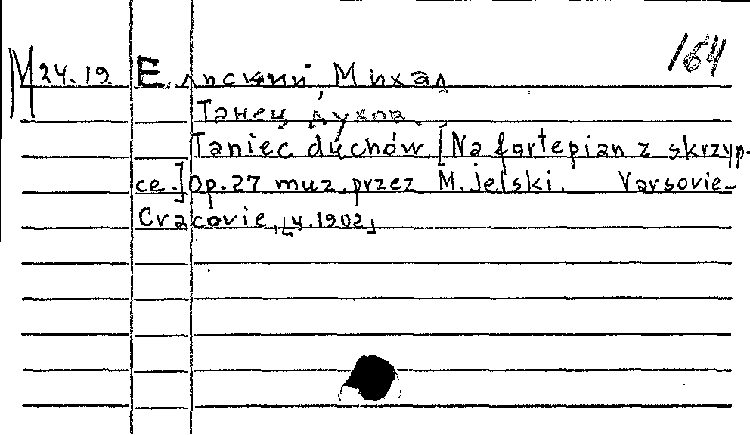 164
M 24.19 Ельский, Михал
Танец духов.
Taniec duchów [Na fortepian z skrzyp-
ce.] Op. 27 muz. przez M. Jelski. Varsovie-
Cracovie, [4.1902]